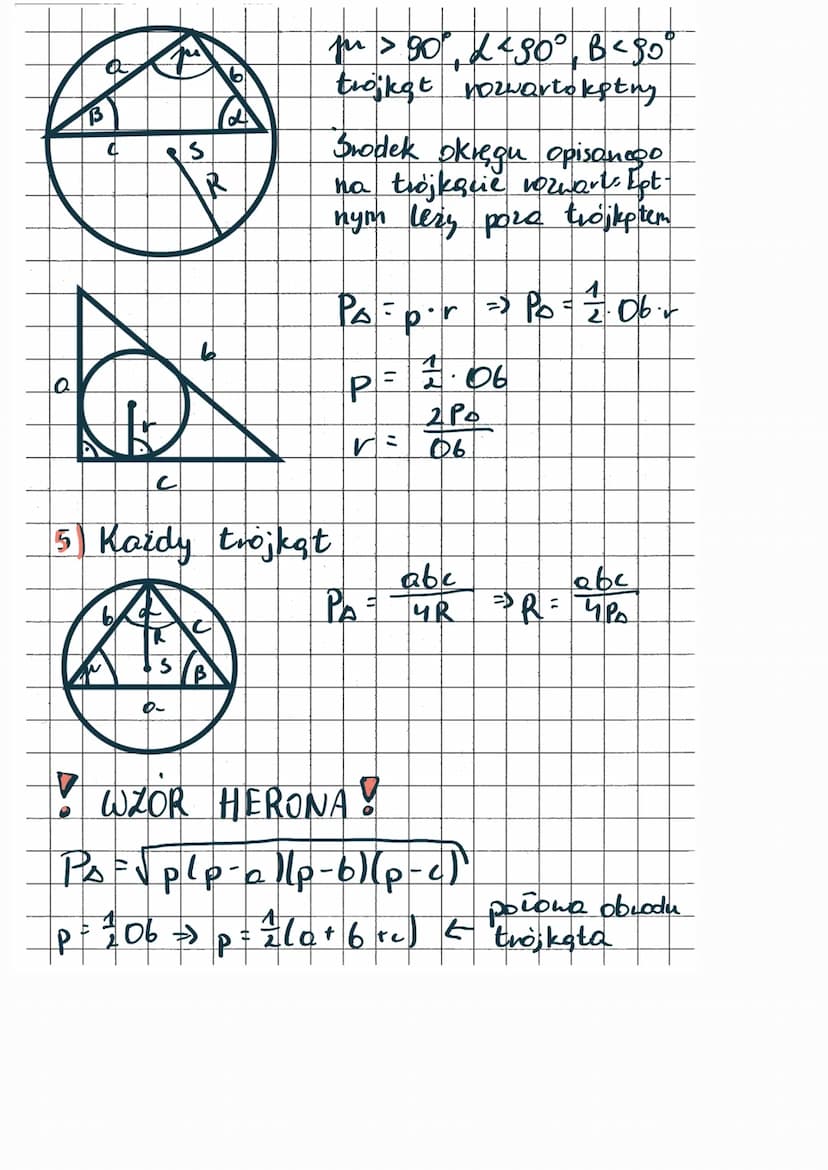 a μ b
β α
c S
R
μ > 90°, α < 90°, β < 90°
trójkąt rozwartokątny
Środek okręgu opisanego
na trójkącie rozwartokąt-
nym leży poza trójkątem
a b
r
c
P△ = p · r ⇒ P△ = 1/2 · Ob · r
p = 1/2 · Ob
r = 2P△/Ob
5) Każdy trójkąt
b α c
R
μ S β
a
P△ = abc/4R ⇒ R = abc/4P△
! WZÓR HERONA !
P△ = √p(p-a)(p-b)(p-c)
p = 1/2 Ob ⇒ p = 1/2(a + b + c) ← połowa obwodu
trójkąta